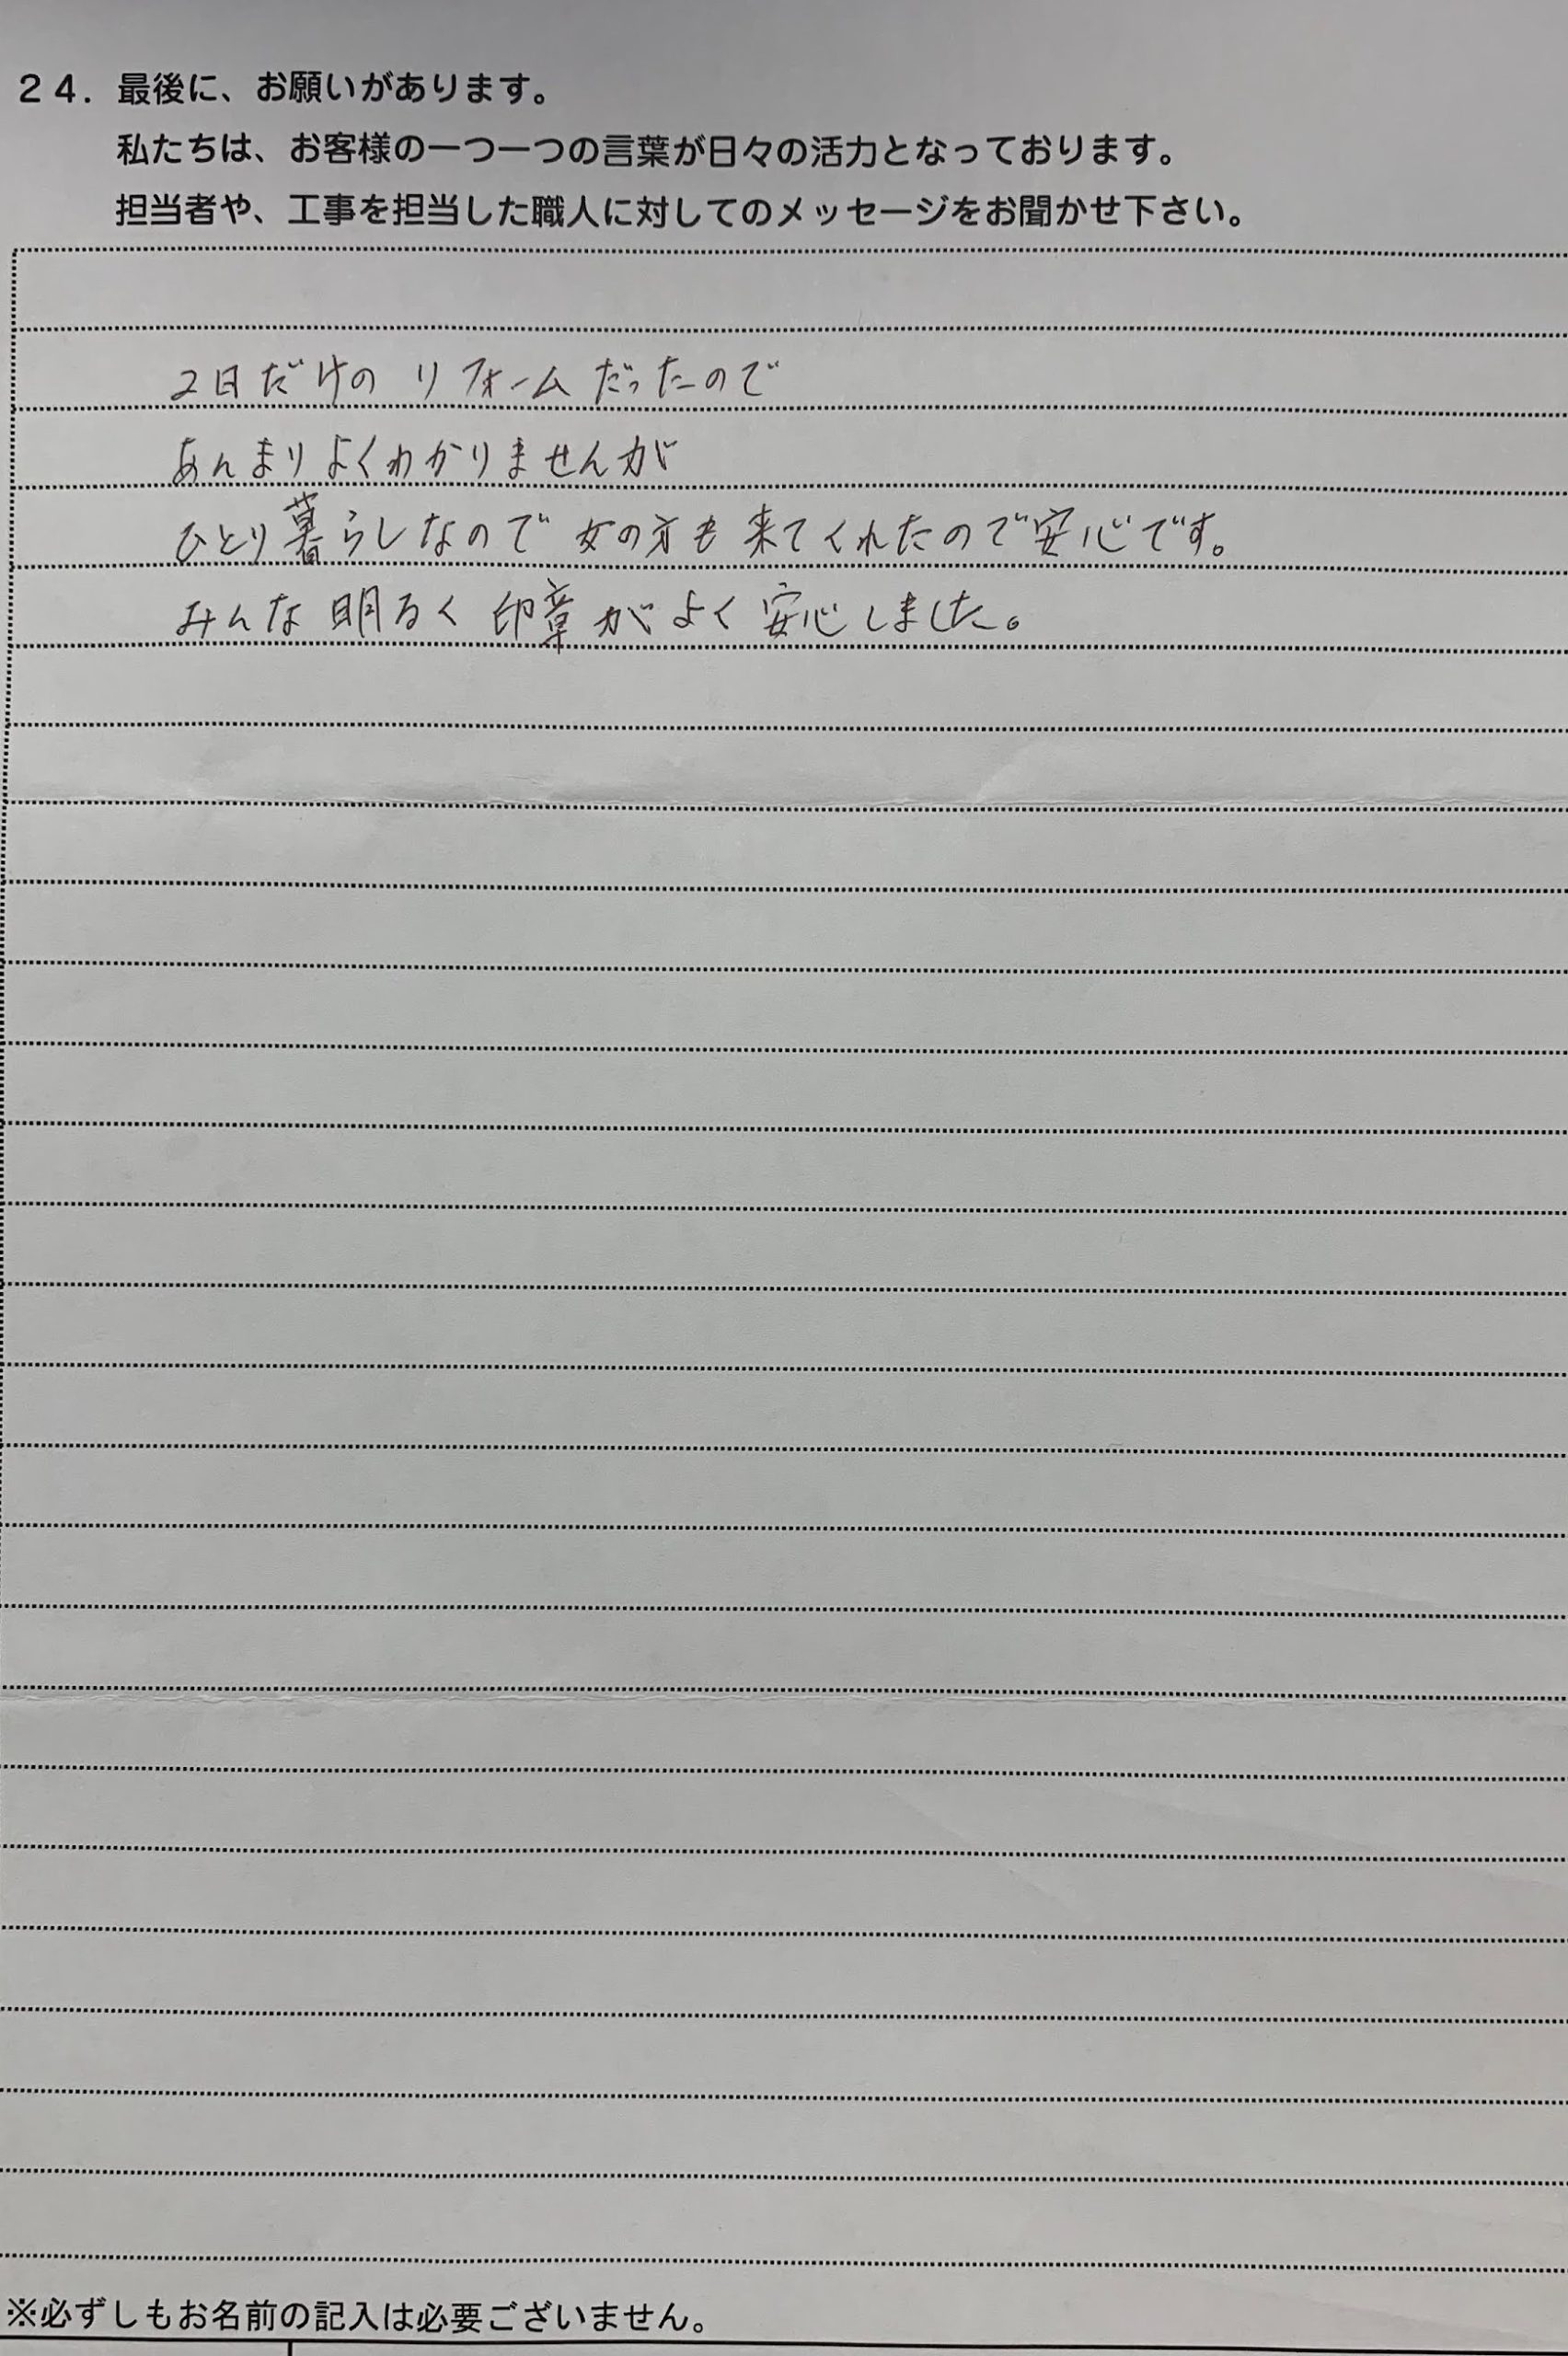 ２４．最後に、お願いがあります。
私たちは、お客様の一つ一つの言葉が日々の活力となっております。
担当者や、工事を担当した職人に対してのメッセージをお聞かせ下さい。
2日だけの リフォームだったので
あんまりよくわかりませんが
ひとり暮らしなので 女の方も 来てくれたので安心です。
みんな 明るく 印章がよく 安心しました。
※必ずしもお名前の記入は必要ございません。